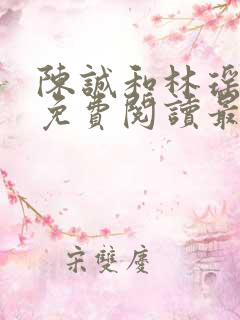 陳誠和林瑤
免費閱讀最
宋雙慶